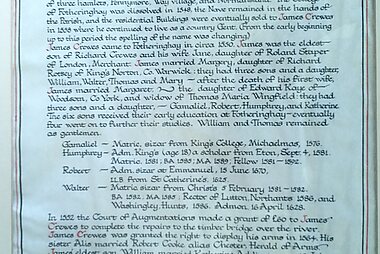 of three hamlets, Pennymore, Way Village, and
Fotheringhay was dissolved in 1548, the New remained in the hands of
the Parish, and the residential Buildings were eventually sold to James Crewes
in 1558 where he continued to live as a country Gent. (From the early beginning
up to this period the spelling of the name was changing)
James Crewes came to Fotheringhay in circa 1550. James was the eldest
son of Richard Crewes and his wife Jane, daughter of Roland Steuper
of London, Mercer. James married Margery, daughter of Richard
Rotsey of King's Norton, Co. Warwick: they had three sons and a daughter,
William, Walter, Thomas and Mary – after the death of his first wife,
James married Margaret, the daughter of Edward Kaye of
Woodson, Co York, and widow of Thomas Maria Wingfield: they had
three sons and a daughter, — Gamaliel, Robert, Humphrey, and Katherine
The six sons received their early education at Fotheringhay – eventually
four went on to further their studies. William and Thomas remained
as gentlemen.
Gamaliel — Matric. sizar from King's College, Michaelmas, 1576.
Humphrey — Adm. King's (age 18) a scholar from Eton, Sept. 4, 1581.
Matric. 1581, BA 1585; MA 1589; Fellow 1581–1592.
Robert — Adm. sizar at Emmanuel, 15 June 1670,
LLB from St. Catherine's, 1625.
Walter — Matric. sizar from Christ's 5 February 1581–1582.
BA 1582, MA 1585; Rector of Lutton, Northants 1586, and
Washingley, Hunts, 1586. Admon. 16 April 1628.
In 1552 the Court of Augmentations made a grant of £60 to James
Crewes to complete the repairs to the timber bridge over the river.
James Crewes was granted the right to display his arms in 1564. His
sister Alis married Robert Cooke alias Chester Herald of Arms
James eldest son William married Katherine